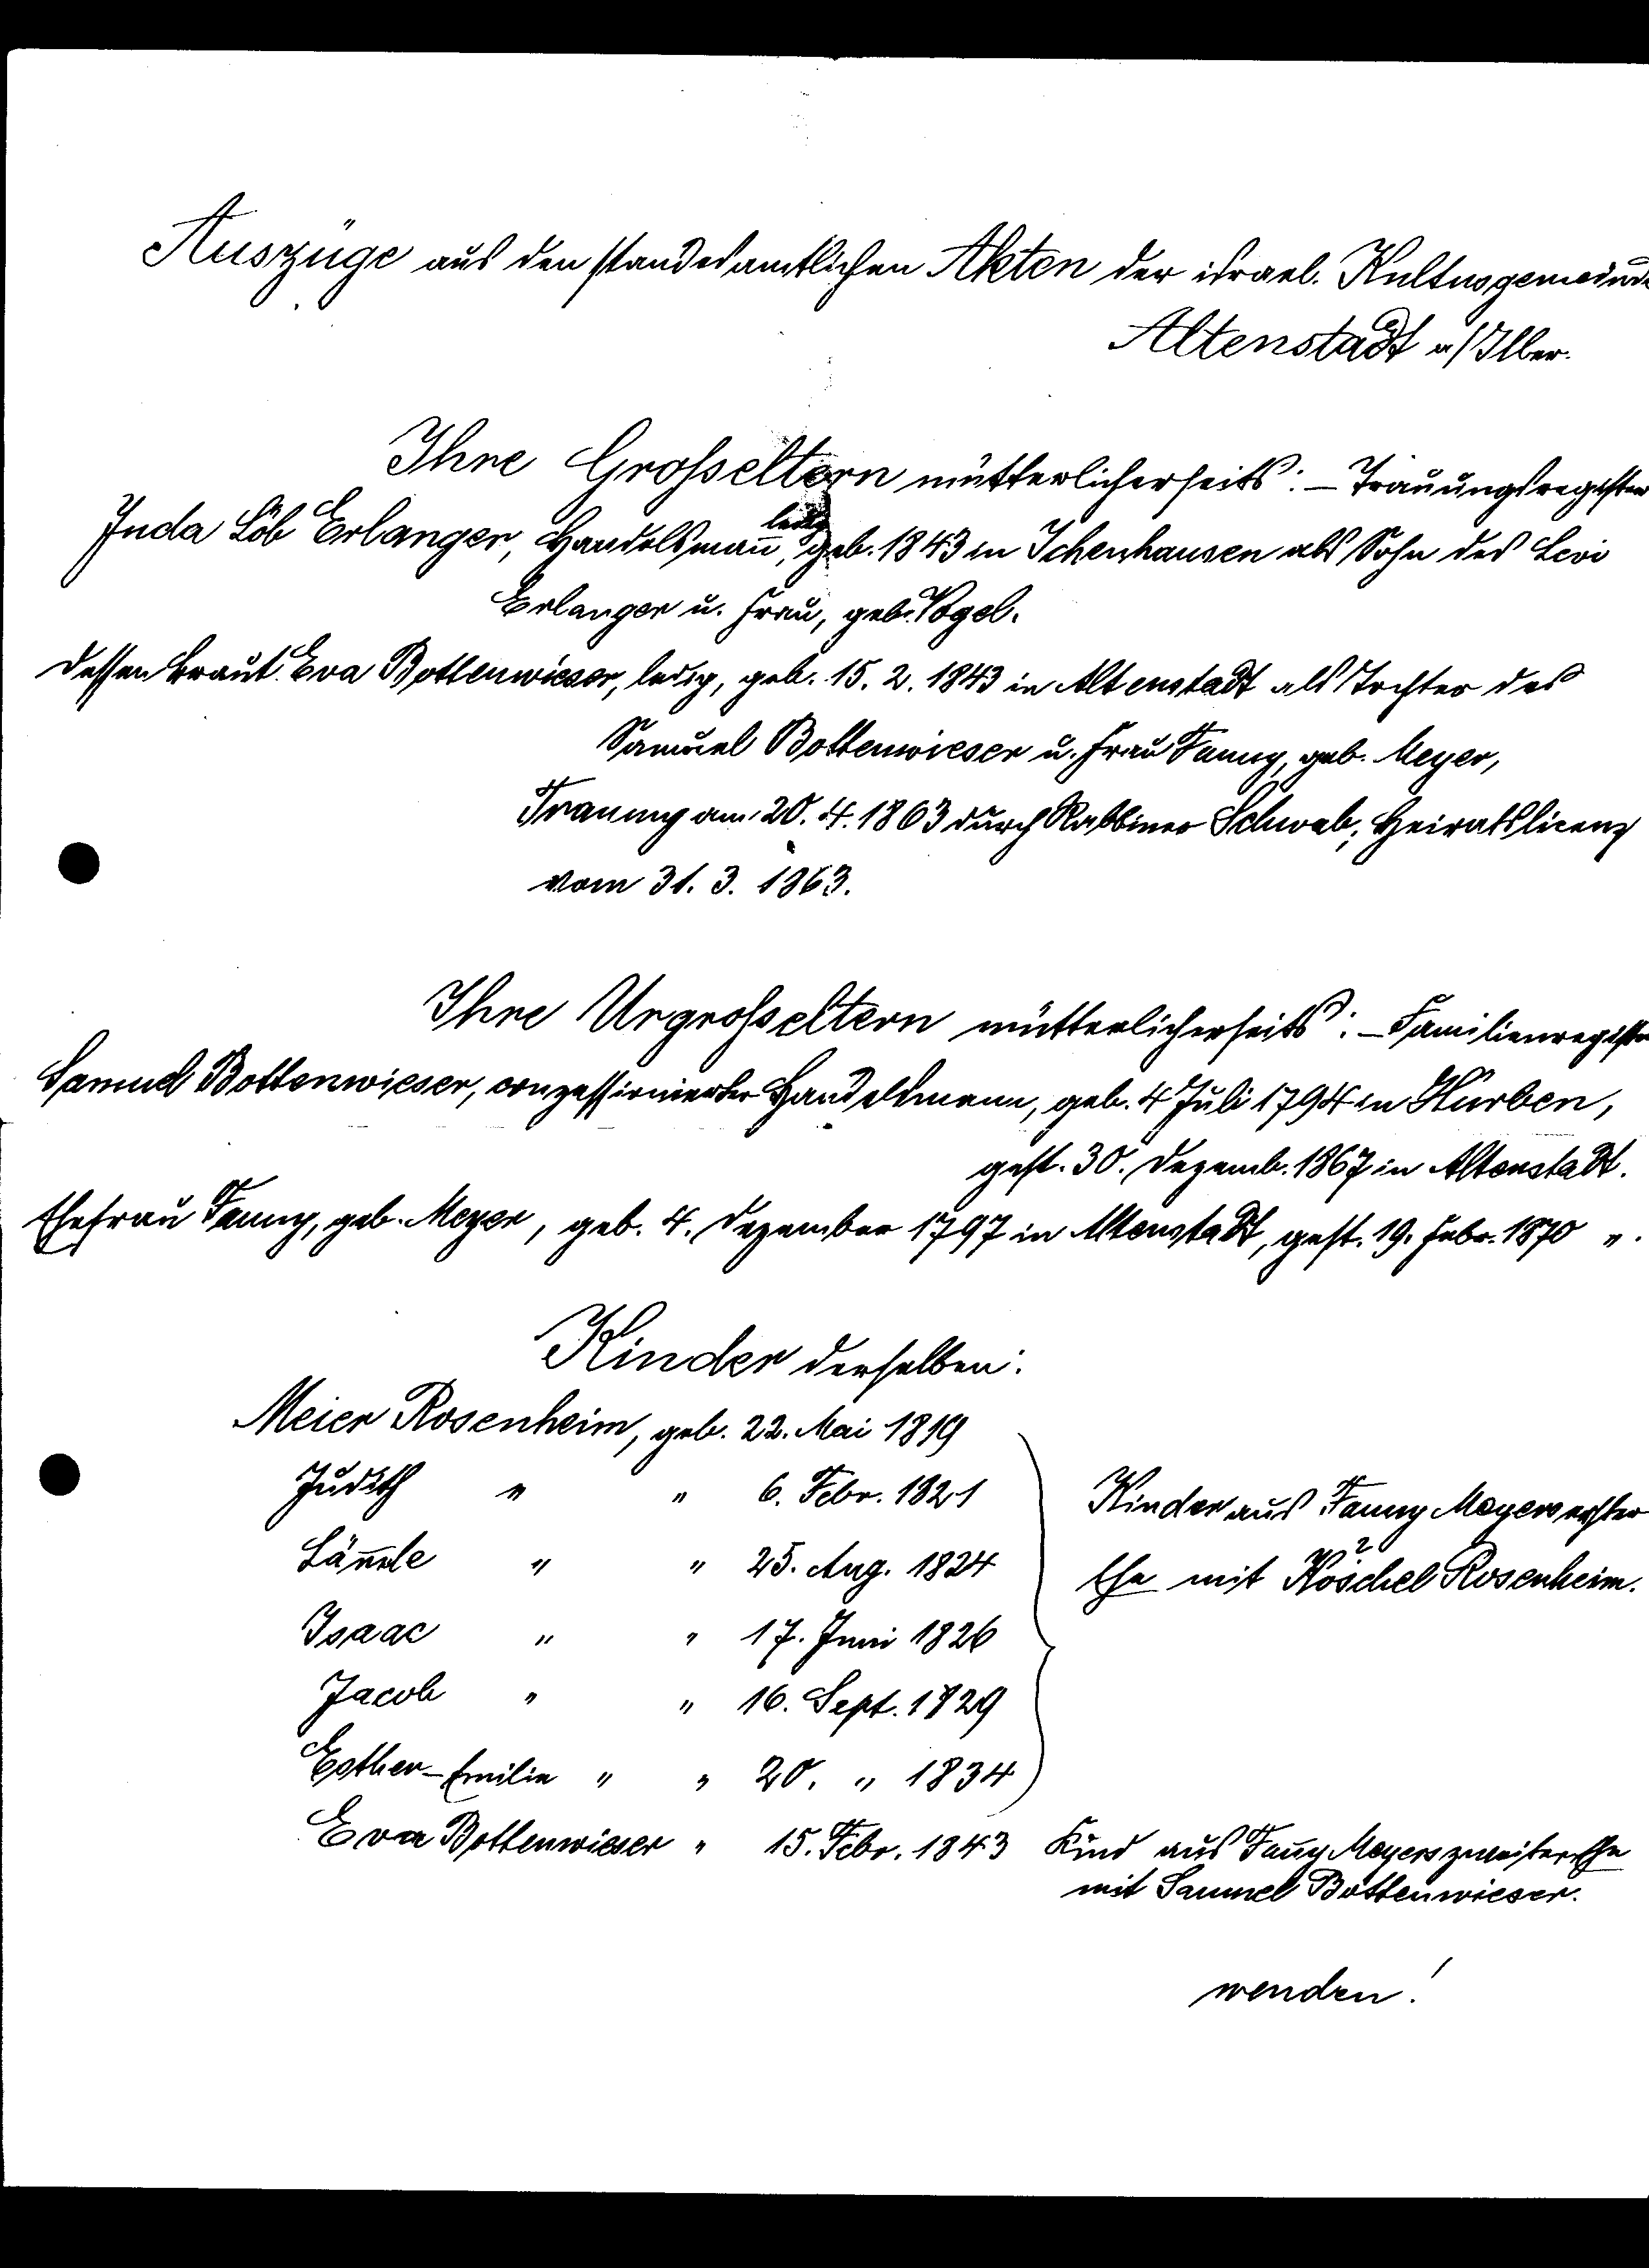 Auszüge aus den standesamtlichen Akten der israel. Kultusgemeinde
Altenstadt a/Iller.
Ihre Grosseltern mütterlicherseits: – Trauungsregister
Juda Löb Erlanger, Handelsmañ, ledig, geb. 1843 in Ichenhausen als Sohn des Levi
Erlanger u. Frau, geb. Vogel.
dessen Braut Eva Bottenwieser, ledig, geb. 15. 2. 1843 in Altenstadt als Tochter des
Samuel Bottenwieser u. Frau Fanny, geb. Meyer,
Trauung am 20. 4. 1863 durch Rabbiner Schwab, Heiratslicenz
vom 31. 3. 1863.
Ihre Urgrosseltern mütterlicherseits: – Familienregister
Samuel Bottenwieser, conzessionierter Handelsmann, geb. 4 Juli 1794 in Hürben,
gest. 30. Dezemb. 1867 in Altenstadt.
Ehefrau Fanny, geb. Meyer, geb. 4. Dezember 1797 in Altenstadt, gest. 19. Febr. 1870 ".
Kinder derselben:
Meier Rosenheim, geb. 22. Mai 1819
Judith " " 6. Febr. 1821
" " 25. Aug. 1824
Isaac " " 17. Juni 1826
Jacob " " 16. Sept. 1829
Esther-Emilie " " 20. " 1834
Kinder aus Fanny Meyers erster
Ehe mit Köschel ? Rosenheim.
Eva Bottenwieser " 15. Febr. 1843 Kind aus Fañy Meyers zweiter Ehe
mit Samuel Bottenwieser.
wenden!